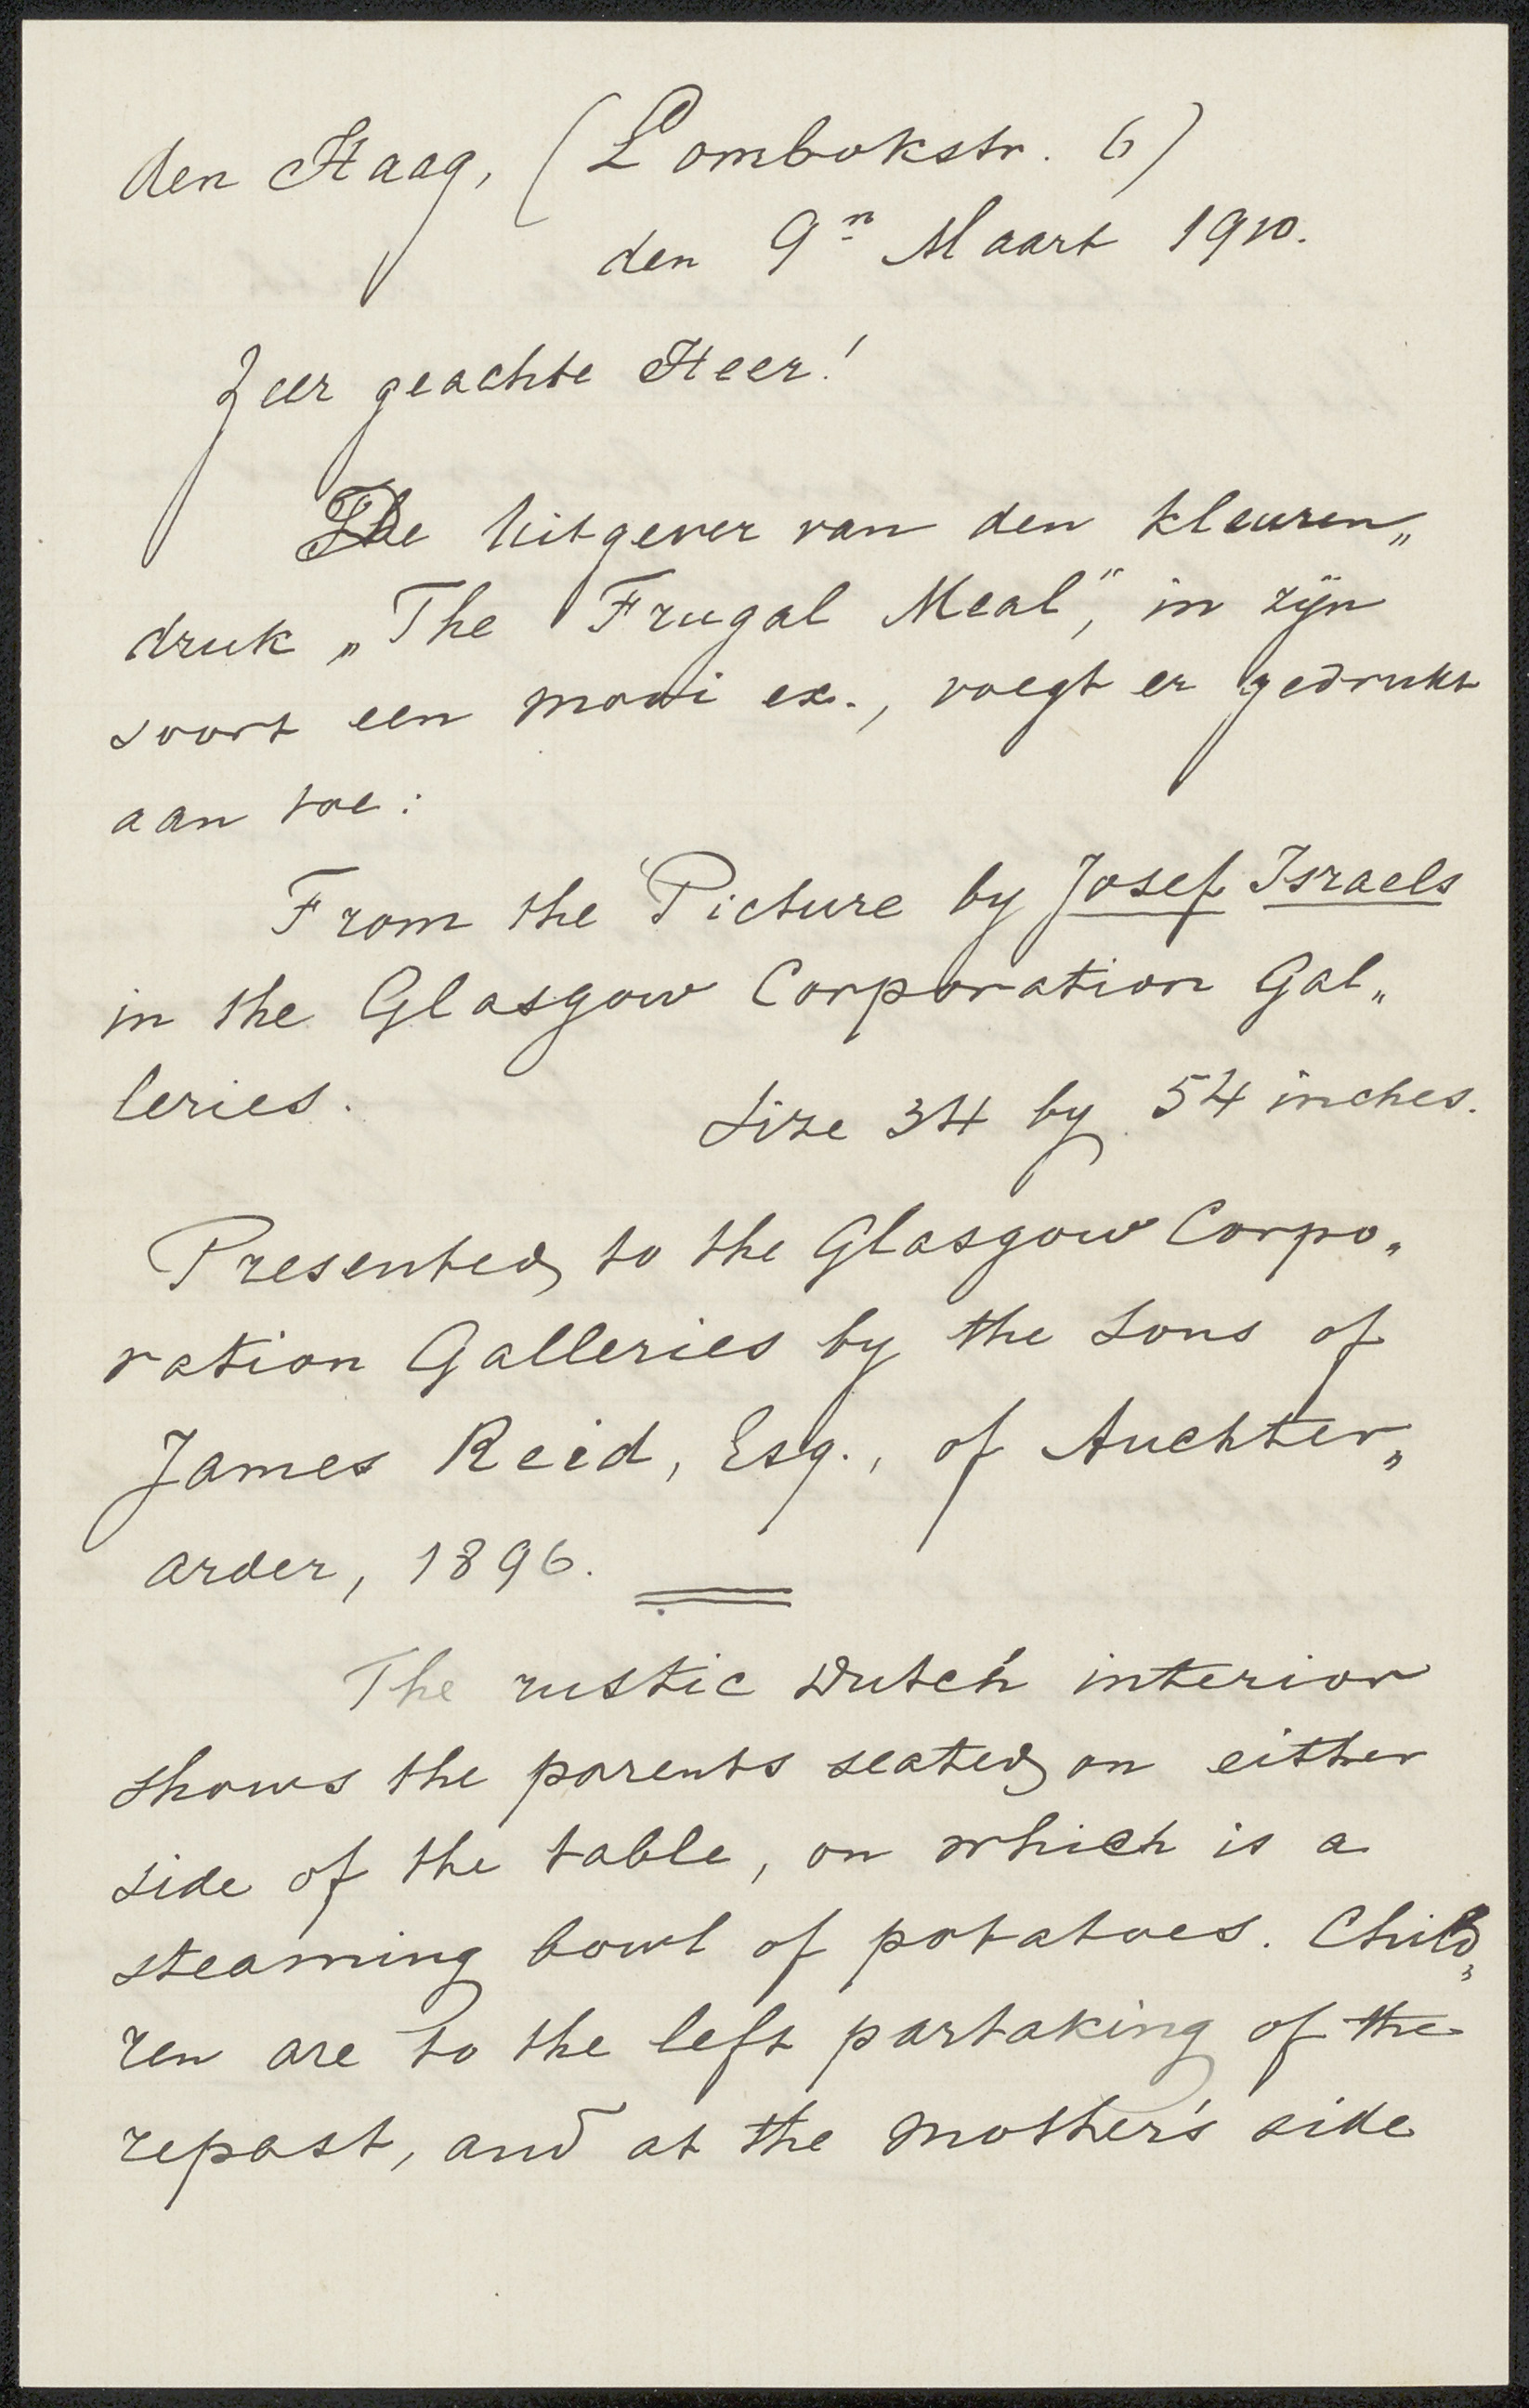 den Haag, (Lombokstr. 6)
den 9n Maart 1910.
Zeer geachte Heer!
De Uitgever van den kleuren„
druk „The Frugal Meal”, in zijn
soort een mooi ex., voegt er gedrukt
aan toe:
From the Picture by Josef Israels
in the Glasgow Corporation Gal„
leries.
Size 34 by 54 inches.
Presented to the Glasgow Corpo„
ration Galleries by the Sons of
James Reid, Esq., of Auchter„
arder, 1896.
The rustic Dutch interior
shows the parents seated on either
side of the table, on which is a
steaming bowl of potatoes. Child„
ren are to the left partaking of the
repast, and at the mother's side